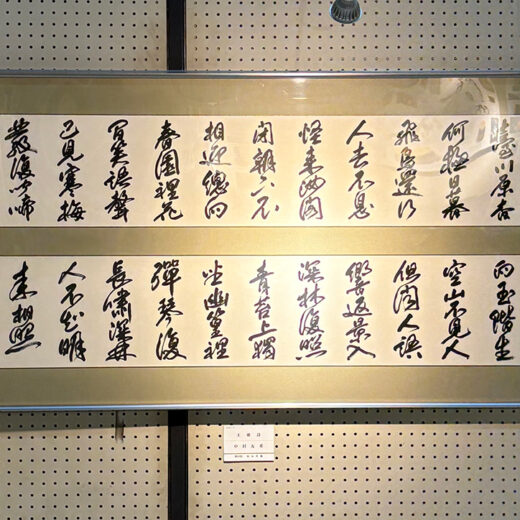 臺川原杳
何極日暮
飛鳥還行
人去不息
怪来妝閣
閉朝下不
相迎總向
春園裡花
間笑語聲
已見寒梅
發復聞啼
向玉階生
空山不見人
但聞人語
響返景入
深林復照
青苔上獨
坐幽篁裡
彈琴復
長嘯深林
人不知明
来相照
王維詩